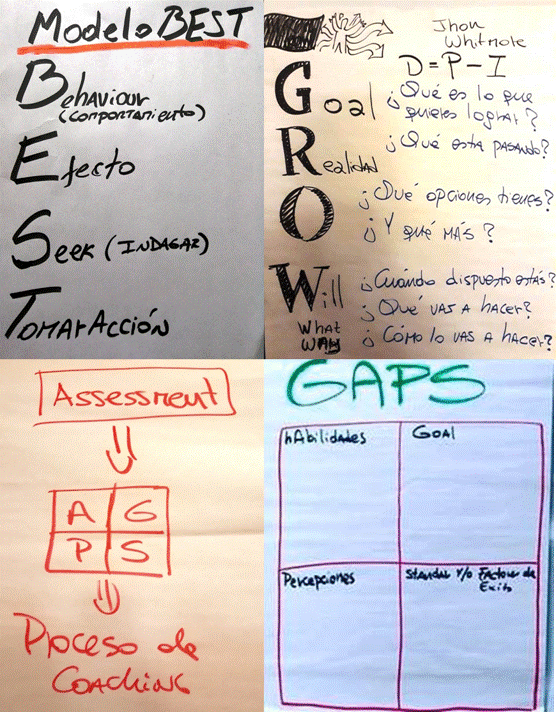 Modelo BEST
Behaviour
(comportamiento)
Efecto
Seek (INDAGAR)
TomarAcción
Jhon
Whitmole
D=P-I
Goal
¿Qué es lo que
quieres lograr?
Realidad
¿Qué esta pasando?
O
¿Qué opciones tienes?
¿Y qué más?
Will
What
Way
¿Cuándo dispuesto estás?
¿Qué vas a hacer?
¿Cómo lo vas a hacer?
Assessment
A G
P S
Proceso de
Coaching
GAPS
hAbilidades
GOAL
Percepciones
Standar y/o Factores de
Exito